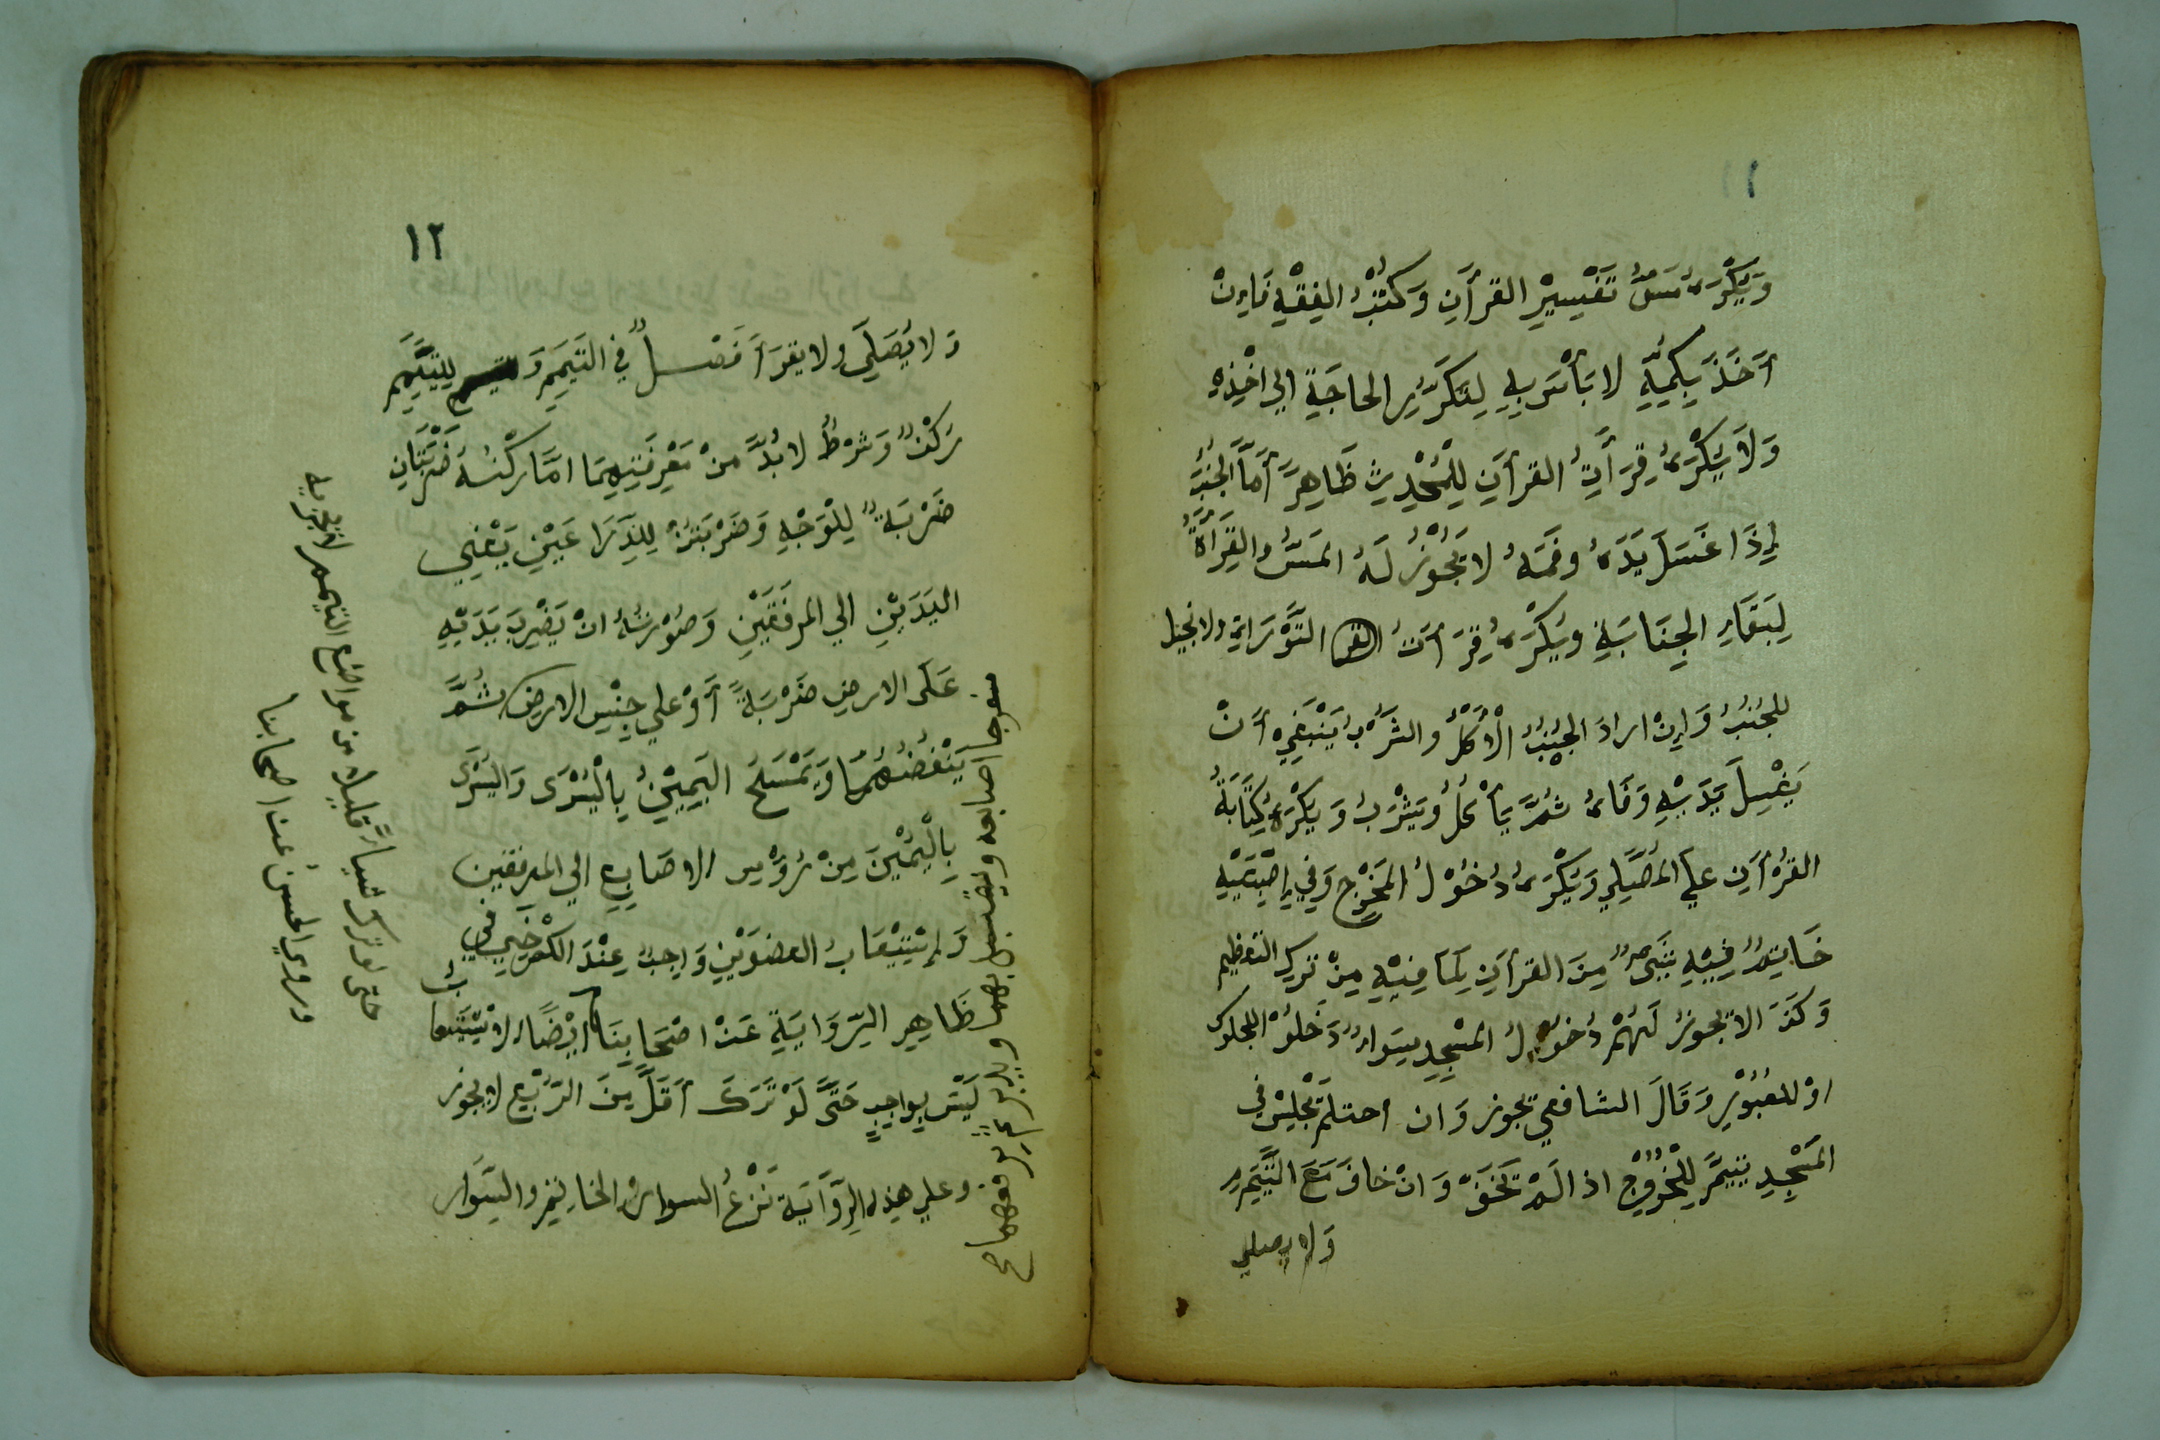 ١١
وَيُكْرَهُ مَسُّ تَفْسِيْرِ القرأنِ وَكُتُبُ الفِقْهِ فَاِنْ
أَخَذَ بِكُمِّهِ لا بَأْسَ بِهِ لِتَكَرُّرِ الحاجَةِ الي اخْذِهِ
وَلاَ يُكْرَهُ قِرَأَتِ القرأنِ لِلْمُحْدِثِ ظَاهِرَ أمَّا الجُنُبُ
اِذَا غَسَلَ يَدَهُ وفَمَهُ لا يَجُوْزُ لَهُ المَسُّ والقِرَأَةُ
لِبَقَاءِ الجِنَابَةِ ويُكْرَهُ قِرَأَتُ القر التَّوْرَاةِ والانجيل
للجُنُبُ وَاِنْ ارادَ الجُنُبُ الْأَكْلُ والشَّرْبُ يَنْبَغِي أَنْ
يَغْسِلَ يَدَيْهِ وَفَاهُ ثُمَّ يَأْكُلُ ويَشْرَبُ وَيُكْرَهُ كِتَابَةُ
القُرْأنِ علي المُصَلِّي وَيُكْرَهُ دُخُوْلُ المَخْرَجِ وَفِي اِصْبَعِهِ
خَاتِمٌ فِيْهِ شَيْءٌ مِنَ القرأنِ لِمَا فِيْهِ مِنْ تَرْكِ التعظيم
وَكَذَ الا يجوزُ لَهُمْ دُخُوْلُ المَسْجِدِ سِوَاءٌ دَخَلُوْ اللجلوس
اوْ للعُبُوْرِ وَقَالَ الشافعي يجوز وَان احتلمَ بَجُلِسْ في
المَسْجِدِ يتيمَّمَ لِلْخُرُوْجِ اذ الَمْ تَخَفْ وَانْ خافَ مَعَ التَّيَمُّمِ
وَلا يصلي
١٢
وَلا يُصَلِّي ولا يقرَأ فَصْلٌ في التَيَمُّمِ وَ لِلتَّيَمُّمِ
رُكْنٌ وَشَرْطٌ لا بُدَّ مِنْ مَعْرِفَتِهِمَا امَّا رُكْنُهُ ضَرْبَتَانِ
ضَرْبَةٌ لِلْوَجْهِ وَضَرْبَةٌ لِلذِّرَاعَيْنِ يَعْنِي
اليَدَيْنِ الي المرفَقَيْنِ وَصُوْرَتُهُ انْ يَضْرِبَ يَدَيْهِ
عَلَى الارضِ ضَرْبَةً أَوْ علي جِنْسِ الارضِ ثُمَّ
يَنْفُضُهُمَا وَيَمْسَحُ اليَمِيْنُ بِالْيُسْرَى وَاليُسْرَى
بِالْيَمِيْنَ مِنْ رُؤُسِ الاصَابِعِ الي المرفقين
وَاِسْتِيْعَابُ العضوَيْنِ وَاجِبٌ عِنْدَ الكَرْخِيِّ في
ظَاهِرِ الرِّوَايَةِ عَنْ اصْحَابِنَا ايْضًا الاسْتِيْعَابُ
لَيْسَ بِوَاجِبٍ حَتَّى لَوْ تَرَكَ أقَلَّ مِنَ الرُّبُعِ لا يجوز
وعلي هذِهِ الرِّوَايَة نَزْعُ السوارِ والخاتِمِ والسِّوَار
مفرجا اصابعه ويقبل بهما ويدبر ثم يرفعهما صح
وروي الحسن عن اصحابنا
حتى لو ترك شيأً قليلا من مواضع التيمم لا يجزيه